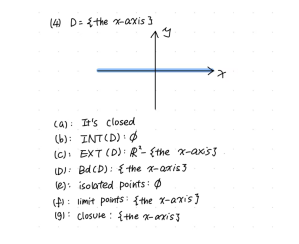 (4) D = {the x-axis}
y
x
(a): It's closed
(b): INT(D): ∅
(c): EXT(D): ℝ² - {the x-axis}
(D): Bd(D): {the x-axis}
(e): isolated points: ∅
(f): limit points: {the x-axis}
(g): closure: {the x-axis}